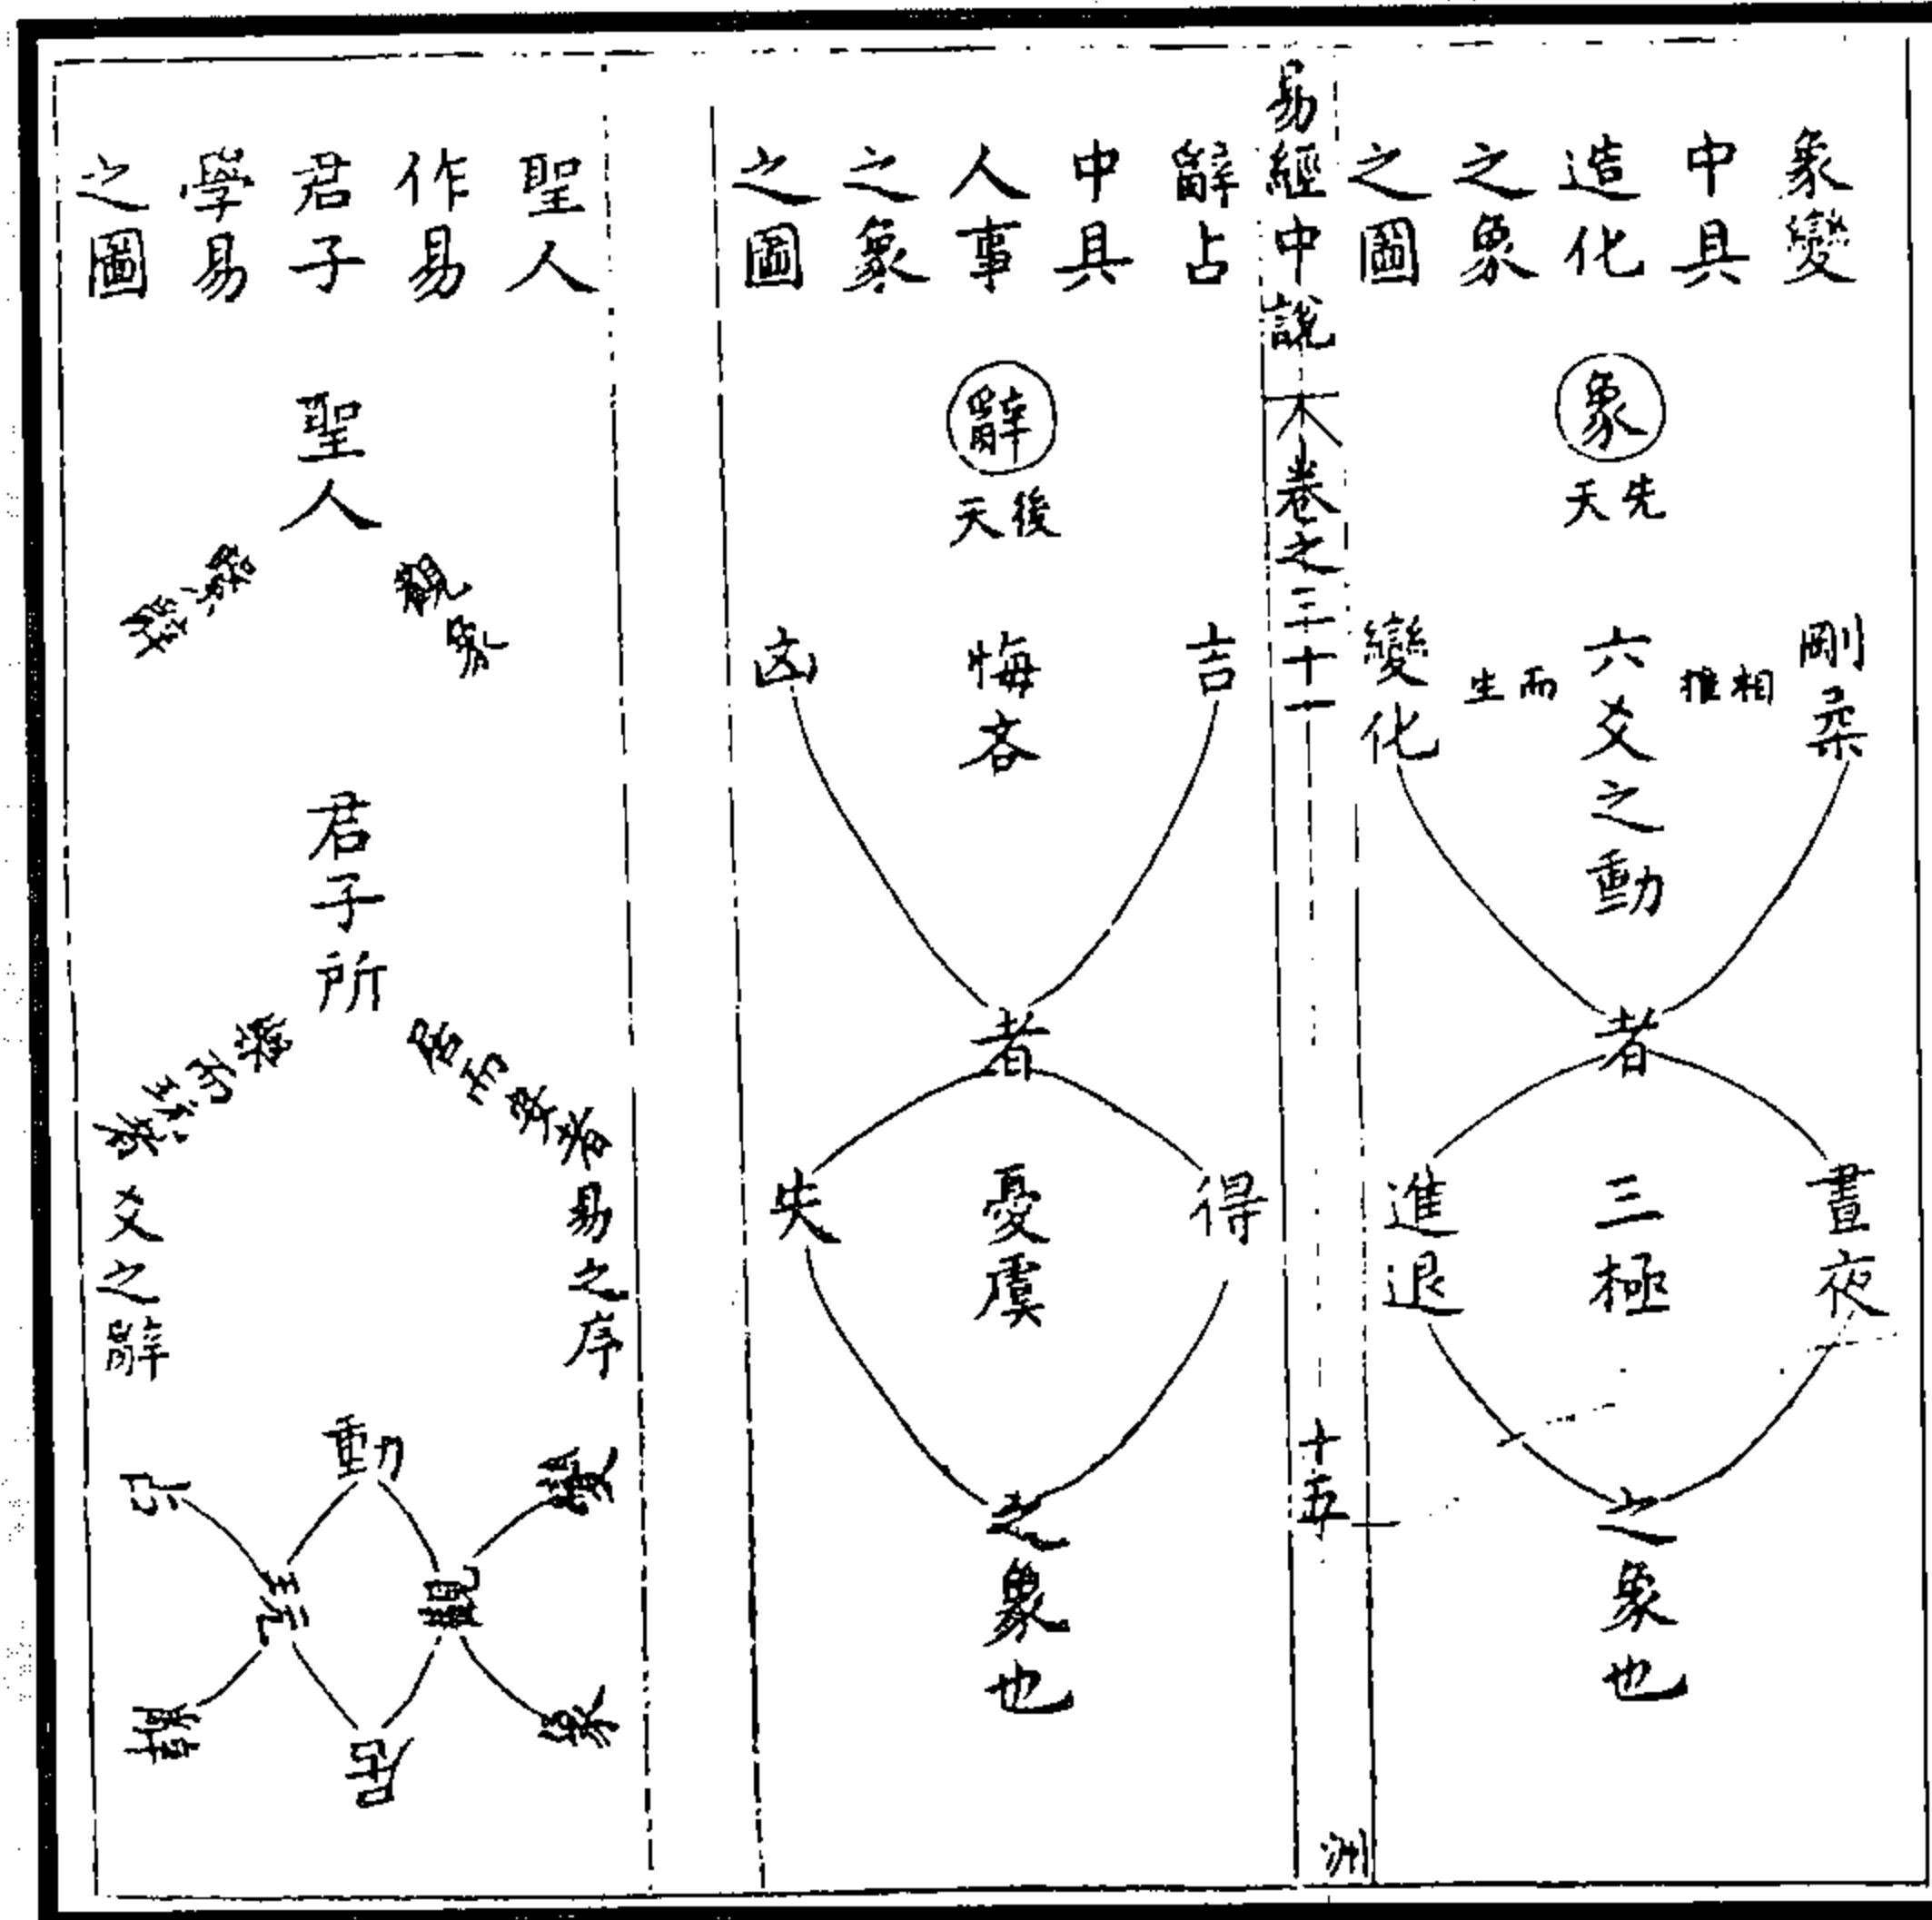 象變
中具
造化
之象
之圖
象
先天
剛柔
相推
六爻之動
而生
變化
者
晝夜
三極
進退
之象也
易經中說
卷之三十一
十五
洲
辭占
中具
人事
之象
之圖
辭
後天
吉
悔吝
凶
者
得
憂虞
失
之象也
聖人
作易
君子
學易
之圖
聖人
觀象
繫辭
君子所
居而安者易之序
樂而玩者爻之辭
動
觀
居
玩
變
象
占
辭